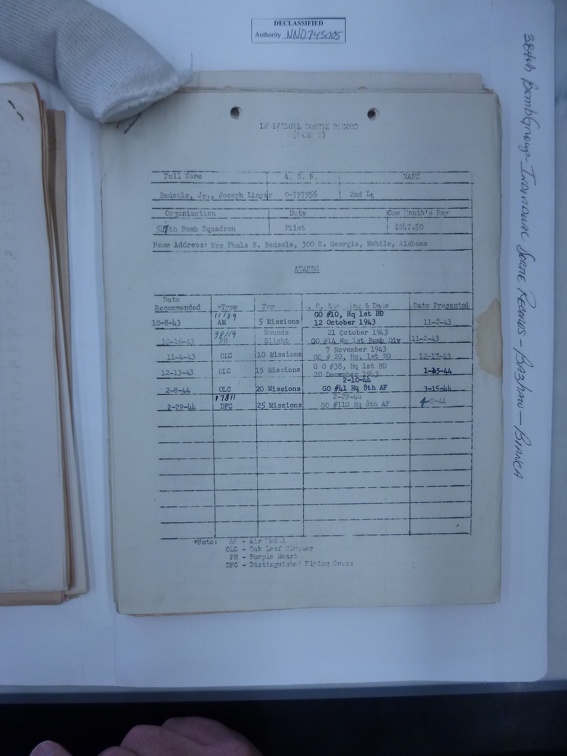 DECLASSIFIED
Authority NND745005
384th Bomb Group - Individual Sortie Records - Bazhaw - Birnea
INDIVIDUAL SORTIE RECORD
Full Name A. S. N. RANK
Bedsole, Jr., Joseph Linyer O-797356 2nd Lt
Organization Duty One Month's Pay
547th Bomb Squadron Pilot $247.50
Home Address: Mrs Phala B. Bedsole, 300 S. Georgia, Mobile, Alabama
AWARDS
Date Recommended *Type For & Date Date Presented
10-8-43 AM 5 Missions GO #10, Hq 1st BD 12 October 1943 11-2-43
10-16-43 PH Wounds Slight 21 October 1943 GO #14 Hq 1st Bomb Div 11-2-43
11-4-43 OLC 10 Missions 7 November 1943 GO # 20, Hq. 1st BD 12-17-43
12-13-43 OLC 15 Missions G O #38, Hq 1st BD 20 December 1943
2-8-44 OLC 20 Missions 2-10-44 GO #41 Hq 8th AF 3-15-44
2-29-44 DFC 25 Missions 2-29-44 GO #110 Hq 8th AF
*Note: AM - Air Medal
OLC - Oak Leaf Cluster
PH - Purple Heart
DFC - Distinguished Flying Cross